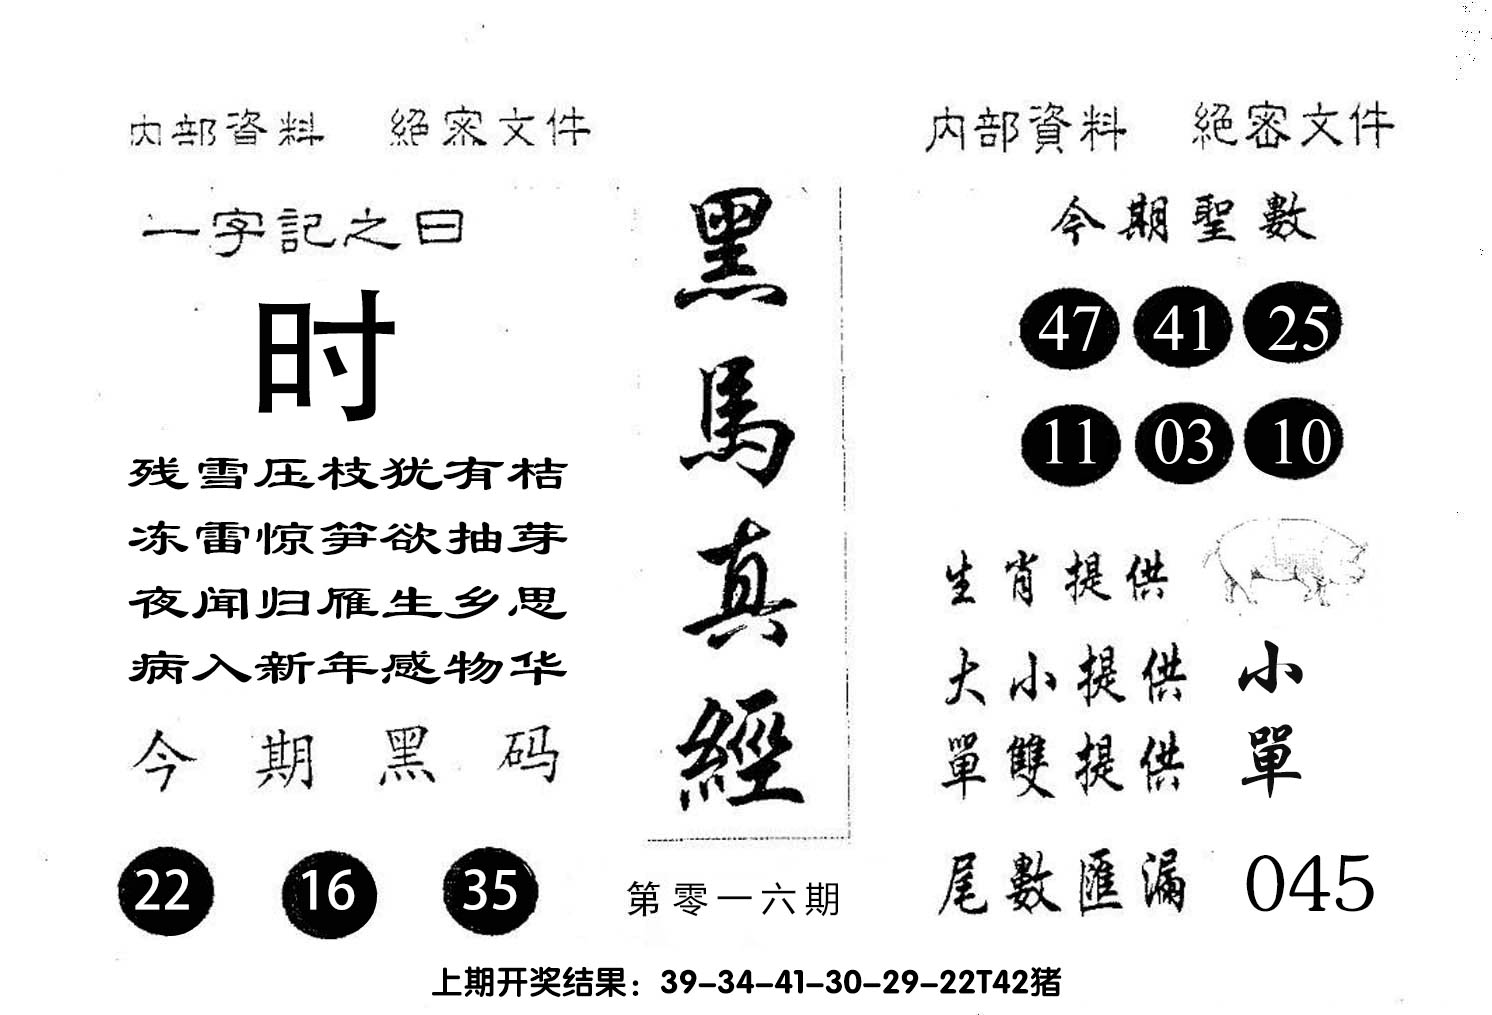 内部資料 絕密文件
一字記之曰
时
残雪压枝犹有桔
冻雷惊笋欲抽芽
夜闻归雁生乡思
病入新年感物华
今期黑码
22 16 35
黑馬真經
第零一六期
内部資料 絕密文件
今期聖數
47 41 25
11 03 10
生肖提供
大小提供 小
單雙提供 單
尾數匯漏 045
上期开奖结果：39-34-41-30-29-22T42猪